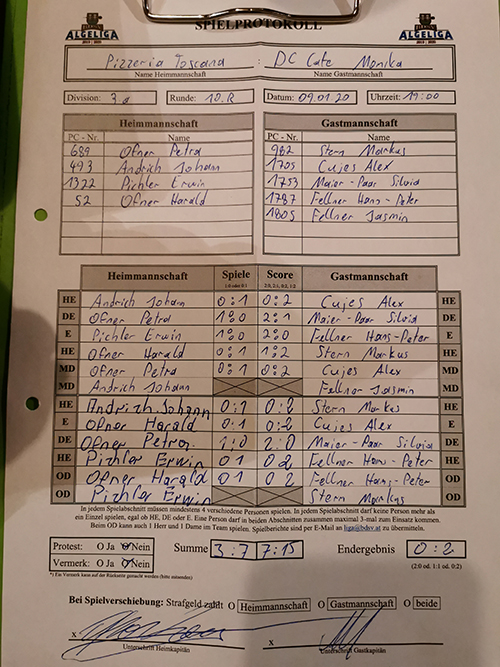 ALGELIGA SPIELPROTOKOLL ALGELIGA
Pizzeria Toscana : DC Cafe Monika
Name Heimmannschaft Name Gastmannschaft
Division: 3.a Runde: 10.R Datum: 09.01.20 Uhrzeit: 19:00
Heimmannschaft Gastmannschaft
PC - Nr. Name PC - Nr. Name
689 Ofner Petra 982 Stern Markus
493 Andrich Johann 1705 Cujes Alex
1322 Pichler Erwin 1753 Maier-Paar Silvia
52 Ofner Harald 1787 Fellner Hans-Peter
1805 Fellner Jasmin
Heimmannschaft Spiele Score Gastmannschaft
1:0 oder 0:1 2:0, 2:1, 0:2, 1:2
HE Andrich Johann 0:1 0:2 Cujes Alex HE
DE Ofner Petra 1:0 2:1 Maier-Paar Silvia DE
E Pichler Erwin 1:0 2:0 Fellner Hans-Peter E
HE Ofner Harald 0:1 1:2 Stern Markus HE
MD Ofner Petra 0:1 0:2 Cujes Alex MD
MD Andrich Johann Fellner Jasmin MD
HE Andrich Johann 0:1 0:2 Stern Markus HE
E Ofner Harald 0:1 0:2 Cujes Alex E
DE Ofner Petra 1:0 2:0 Maier-Paar Silvia DE
HE Pichler Erwin 0 1 0 2 Fellner Hans-Peter HE
OD Ofner Harald 0 1 0 2 Fellner Hans-Peter OD
OD Pichler Erwin Stern Markus OD
In jedem Spielabschnitt müssen mindestens 4 verschiedene Personen spielen. In jedem Spielabschnitt darf keine Person mehr als
ein Einzel spielen, egal ob HE, DE oder E. Eine Person darf in beiden Abschnitten zusammen maximal 3-mal zum Einsatz kommen.
Beim OD kann auch 1 Herr und 1 Dame im Team spielen. Spielberichte sind per E-Mail an liga@bdsv.at zu übermitteln.
Protest: O Ja O Nein Summe 3:7 7:15 Endergebnis 0:2
Vermerk: O Ja O Nein (2:0 od. 1:1 od. 0:2)
*) Ein Vermerk kann auf der Rückseite gemacht werden (bitte umseitig)
Bei Spielverschiebung: Strafgeld zahlt O Heimmannschaft O Gastmannschaft O beide
x x
Unterschrift Heimkapitän Unterschrift Gastkapitän